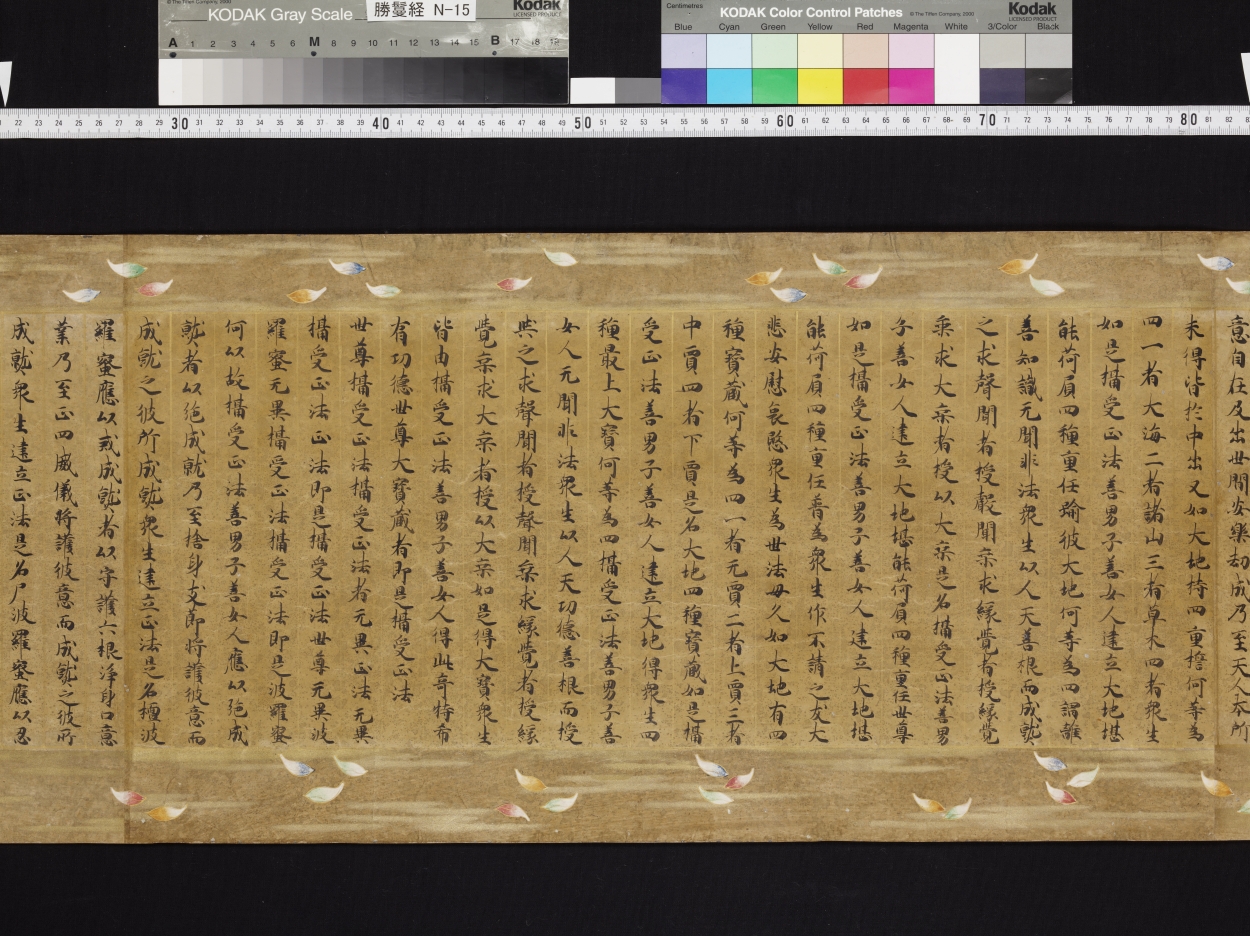 © The Tiffen Company, 2000
KODAK Gray Scale
勝鬘経 N-15
Kodak
LICENSED PRODUCT
A 1 2 3 4 5 6 M 8 9 10 11 12 13 14 15 B 17 18 19
Centimetres
KODAK Color Control Patches
© The Tiffen Company, 2000
Kodak
LICENSED PRODUCT
Blue Cyan Green Yellow Red Magenta White 3/Color Black
22 23 24 25 26 27 28 29 30 31 32 33 34 35 36 37 38 39 40 41 42 43 44 45 46 47 48 49 50 51 52 53 54 55 56 57 58 59 60 61 62 63 64 65 66 67 68 69 70 71 72 73 74 75 76 77 78 79 80 81 82
意自在及出世間安樂劫成乃至天人本所
未得皆於中出又如大地持四重擔何等為
四一者大海二者諸山三者草木四者衆生
如是攝受正法善男子善女人建立大地堪
能荷負四種重任踰彼大地何等為四謂離
善知識无聞非法衆生以人天善根而成就
之求聲聞者授聲聞乘求緣覺者授緣覺
乘求大乘者授以大乘是名攝受正法善男
子善女人建立大地堪能荷負四種重任世尊
如是攝受正法善男子善女人建立大地堪
能荷負四種重任普為衆生作不請之友大
悲安慰哀愍衆生為世法母又如大地有四
種寶藏何等為四一者无賈二者上賈三者
中賈四者下賈是名大地四種寶藏如是攝
受正法善男子善女人建立大地得衆生四
種最上大寶何等為四攝受正法善男子善
女人无聞非法衆生以人天功德善根而授
與之求聲聞者授聲聞乘求緣覺者授緣
覺乘求大乘者授以大乘如是得大寶衆生
皆由攝受正法善男子善女人得此奇特希
有功德世尊大寶藏者即是攝受正法
世尊攝受正法攝受正法者无異正法无異
攝受正法正法即是攝受正法世尊无異波
羅蜜无異攝受正法攝受正法即是波羅蜜
何以故攝受正法善男子善女人應以施成
就者以施成就乃至捨身支節將護彼意而
成就之彼所成就衆生建立正法是名檀波
羅蜜應以戒成就者以守護六根淨身口意
業乃至正四威儀將護彼意而成就之彼所
成就衆生建立正法是名尸波羅蜜應以忍